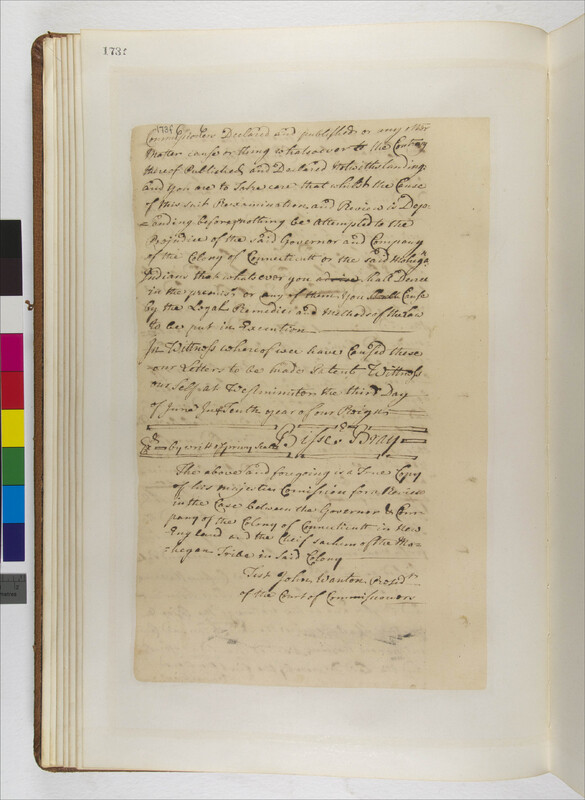 173f
173f
Commissioners Declared and published or any other
Matter cause or thing whatsoever to the Contrary
thereof Published and Declared Notwithstanding
and You are to Take care that whilst the Cause
of this suit Reexamination and Review is Dep-
=ending before you nothing be Attempted to the
Prejudice of the said Governor and Company
of the Colony of Connecticutt or the said Mohegan
Indians that whatever you advise shall Decree
in the premises or any of them You Cause
by the Legal Remedies and Methods of the Law
to be put in Execution
In Wittness whereof wee have Caused these
our Letters to be made Patent Wittness
our self at Westminster the third Day
of June In ye Tenth year of our Reign
By writt of privy Seale Bisse & Bray
The above and foregoing is a True Copy
of his majesties Comission for a Review
in the Case between the Governor & Com-
pany of the Colony of Connecticutt in New
England and the Cheif sachem of the Mo-
hegan Tribe in said Colony
Test John Wanton Presid.t
of the Court of Commissioners